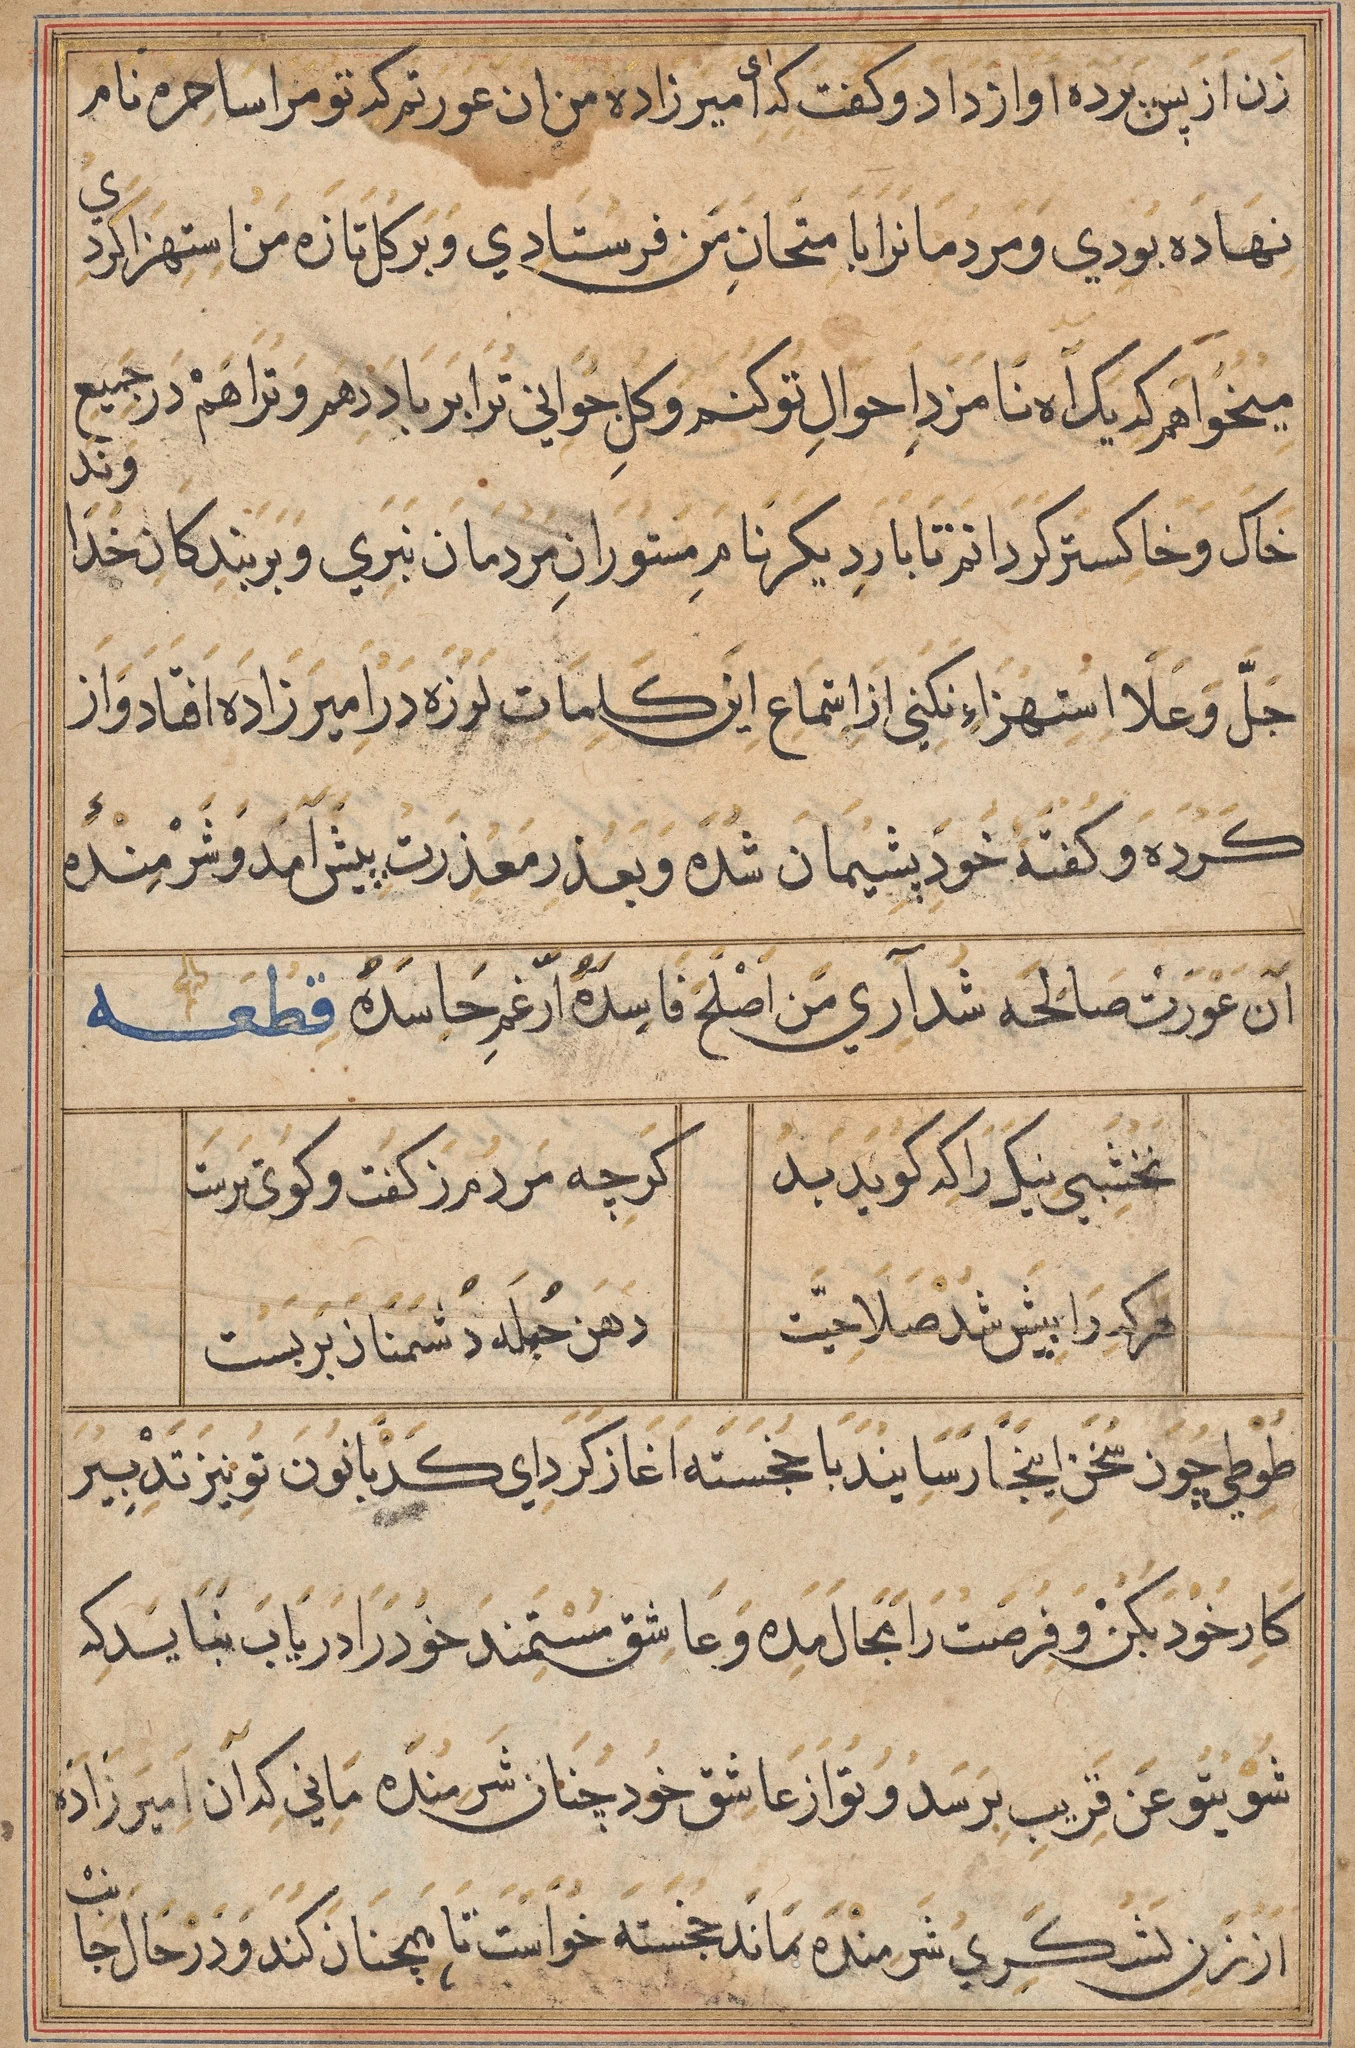 زن از پس پرده اواز داد و کفت که ای امیر زاده من ان عورتم که تو مرا ساحره نام
نهاده بودي و مردمانرا بامتحان من فرستادي و بر کل تازه من استهزا کردي
میخواهم که یک آه نامزد احوال تو کنم و کل جواني ترا بر باد دهم و ترا هم در جمیع
خاک و خاکستر کردانم تا بار دیکر نام مستوران مردمان نبري و بر بندکان خداوند
جل و علا استهزاء نکني از استماع این کلمات لرزه در امیر زاده افتاد و از
کرده و کفتهٔ خود پشیمان شده و بعذر معذرت پیش آمد و شرمندهٔ
آن عورت صالحه شد آري من اصلح فاسده ارغم حاسده قطعه
نخشبي نیک را که کوید بد
کرچه مردم ز کفت و کوی برست
هرکه را پیش شد صلاحیت
دهن جمله دشمنان بر بست
طوطي چون سخن اینجا رسانید با خجسته اغاز کرد اي کدبانو تو نیز تدبیر
کار خود بکن و فرصت را مجال مده و عاشق مستمند خود را دریاب نباید که
شوي تو عن قریب برسد و تو از عاشق خود چنان شرمنده ماني که آن امیر زاده
از زن لشکري شرمنده ماند خجسته خواست تا همچنان کند و در حال جانب